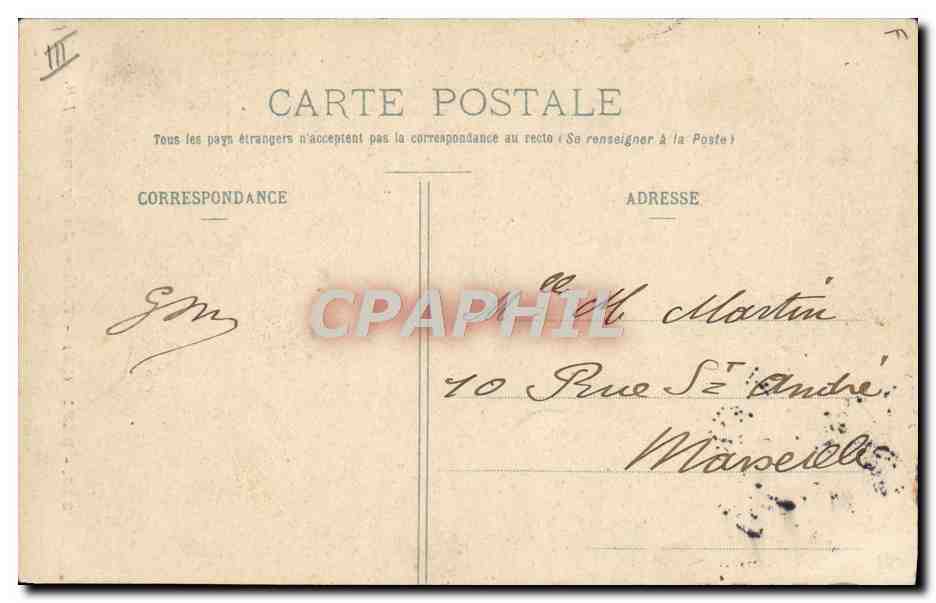 III
F
CARTE POSTALE
Tous les pays étrangers n'acceptent pas la correspondance au recto (Se renseigner à la Poste)
CORRESPONDANCE
ADRESSE
GM
CPAPHIL
Mlle M Martin
10 Rue St André
Marseille